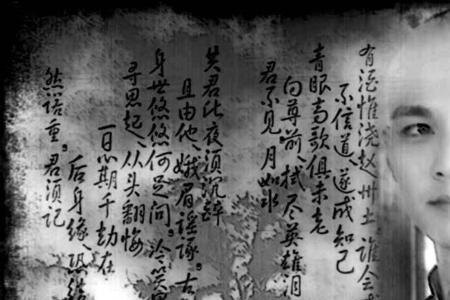 有酒惟浇赵州土。谁会
不信道、遂成知己
青眼高歌俱未老
向尊前、拭尽英雄泪
君不见月如水
共君此夜须沉醉
且由他、娥眉谣诼。古
身世悠悠何足问。冷笑
寻思起、从头翻悔
一日心期千劫在
后身缘、恐结
然诺重。君须记